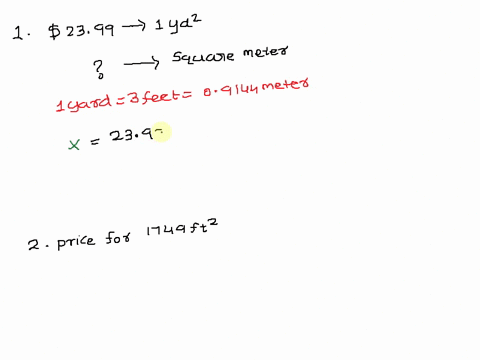 1. $ 23.99 → 1 yd²
? → Square meter
1 yard = 3 feet = 0.9144 meter
x = 23.9
2. price for 1749 ft²